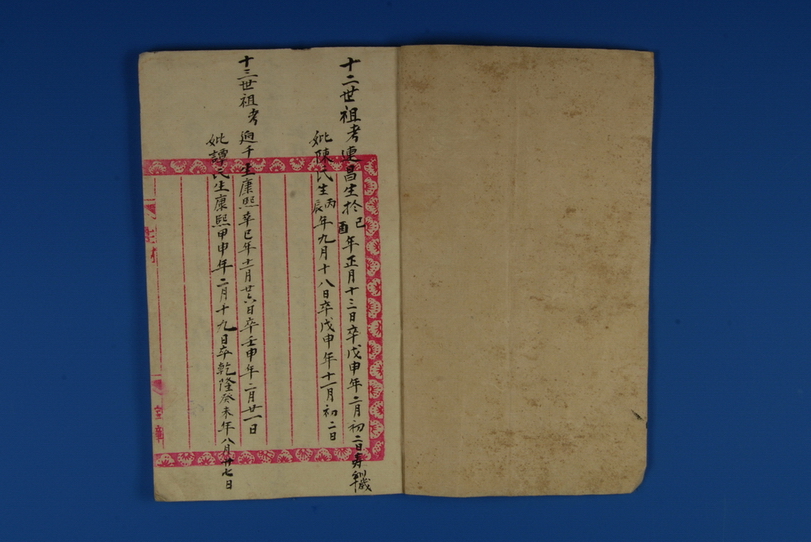 十二世祖考連昌生於己酉年正月十三日卒戊申年二月初二日壽歲
妣陳氏生丙辰年九月十八日卒戊申年十一月初二日
十三世祖考迺千生康熙辛巳年十二月廿六日卒壬申年二月廿一日
妣譚氏生康熙甲申年二月十九日卒乾隆癸未年八月廿七日